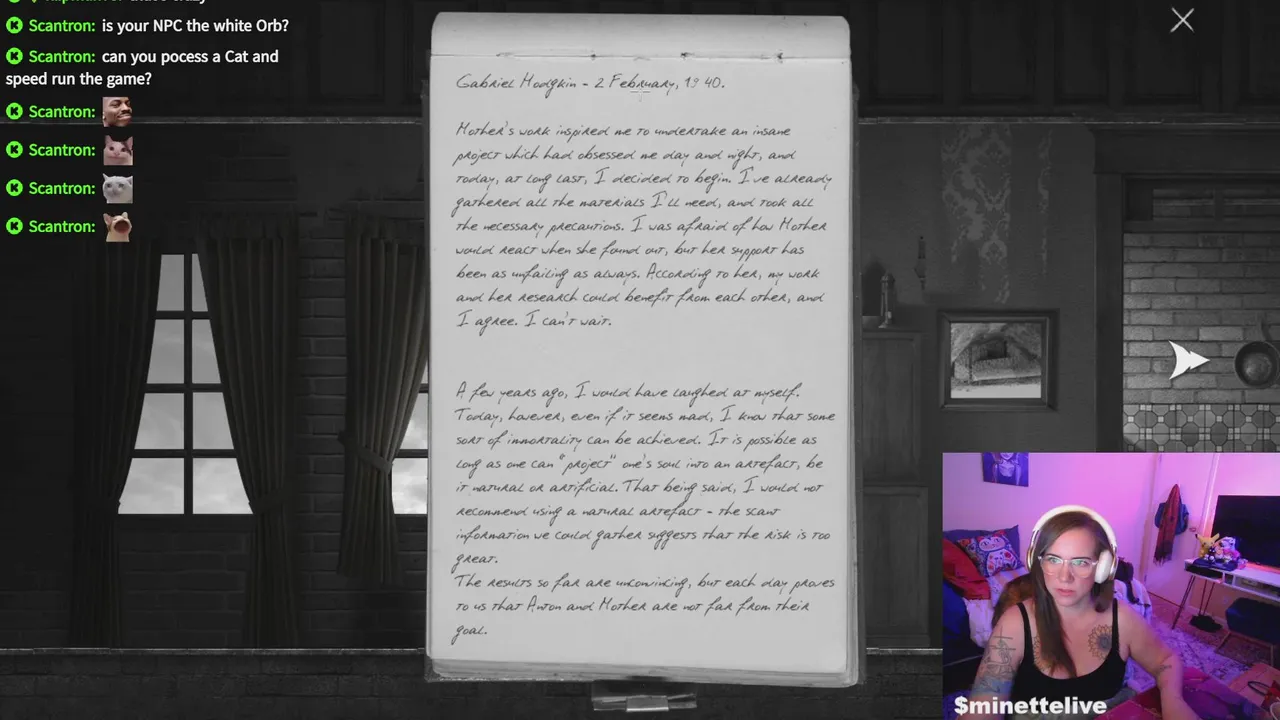 Scantron: is your NPC the white Orb?
Scantron: can you pocess a Cat and
speed run the game?
Scantron:
Scantron:
Scantron:
Scantron:
Gabriel Hodgkin - 2 February, 1940.
Mother's work inspired me to undertake an insane
project which had obsessed me day and night, and
today, at long last, I decided to begin. I've already
gathered all the materials I'll need, and took all
the necessary precautions. I was afraid of how Mother
would react when she found out, but her support has
been as unfailing as always. According to her, my work
and her research could benefit from each other, and
I agree. I can't wait.
A few years ago, I would have laughed at myself.
Today, however, even if it seems mad, I know that some
sort of immortality can be achieved. It is possible as
long as one can "project" one's soul into an artefact, be
it natural or artificial. That being said, I would not
recommend using a natural artefact - the scant
information we could gather suggests that the risk is too
great.
The results so far are unconvincing, but each day proves
to us that Anton and Mother are not far from their
goal.
$minettelive